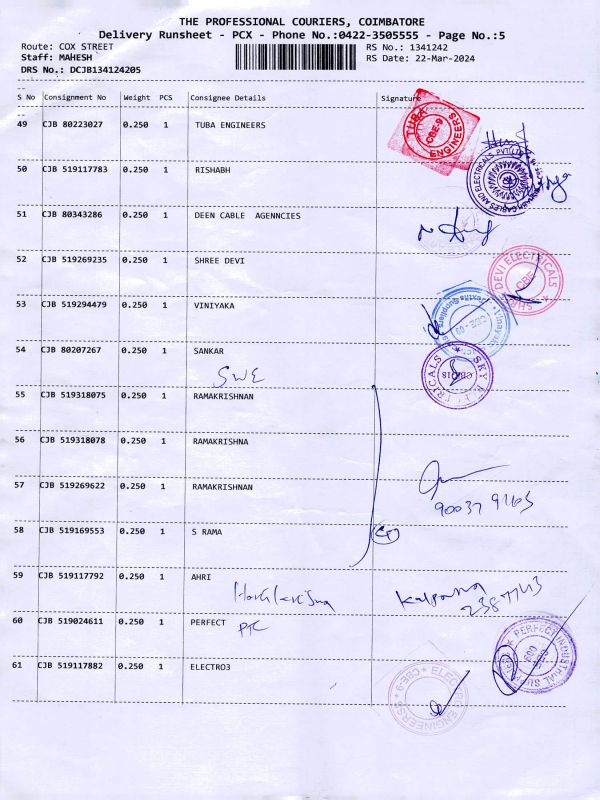 THE PROFESSIONAL COURIERS, COIMBATORE
Delivery Runsheet - PCX - Phone No.:0422-3505555 - Page No.:5
Route: COX STREET RS No.: 1341242
Staff: MAHESH RS Date: 22-Mar-2024
DRS No.: DCJB134124205
S No Consignment No Weight PCS Consignee Details Signature
49 CJB 80223027 0.250 1 TUBA ENGINEERS
TUBA ENGINEERS CBE-9
50 CJB 519117783 0.250 1 RISHABH
CABLES AND ELECTRICALS PVT LTD
51 CJB 80343286 0.250 1 DEEN CABLE AGENNCIES
52 CJB 519269235 0.250 1 SHREE DEVI
DEVI ELECTRICALS CBE
53 CJB 519294479 0.250 1 VINIYAKA
54 CJB 80207267 0.250 1 SANKAR
SWE
SKY
55 CJB 519318075 0.250 1 RAMAKRISHNAN
56 CJB 519318078 0.250 1 RAMAKRISHNA
57 CJB 519269622 0.250 1 RAMAKRISHNAN
90037 9265
58 CJB 519169553 0.250 1 S RAMA
59 CJB 519117792 0.250 1 AHRI
Kalpana
60 CJB 519024611 0.250 1 PERFECT
PERFECT INDUSTRIAL
61 CJB 519117882 0.250 1 ELECTRO3
ENGINEERS CBE-9